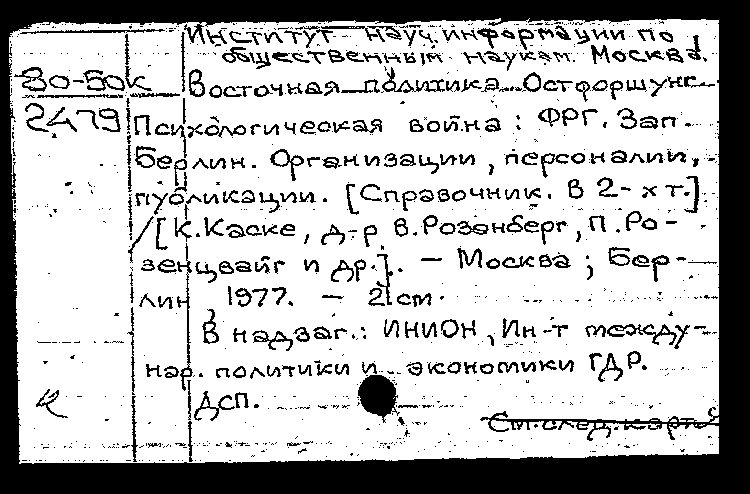 Институт науч. информации по
общественным наукам. Москва.
80-50к Восточная политика. Остфоршунг.
2479 Психологическая война: ФРГ. Зап.
Берлин. Организации, персоналии,
публикации. [Справочник. В 2-х т.]
/[К. Каске, д-р В. Розенберг, П. Ро-
зенцвайг и др.]. - Москва; Бер-
лин, 1977. - 2 см.
В надзаг.: ИНИОН, Ин-т между-
нар. политики и экономики ГДР.
ДСП.
См. след. карт.